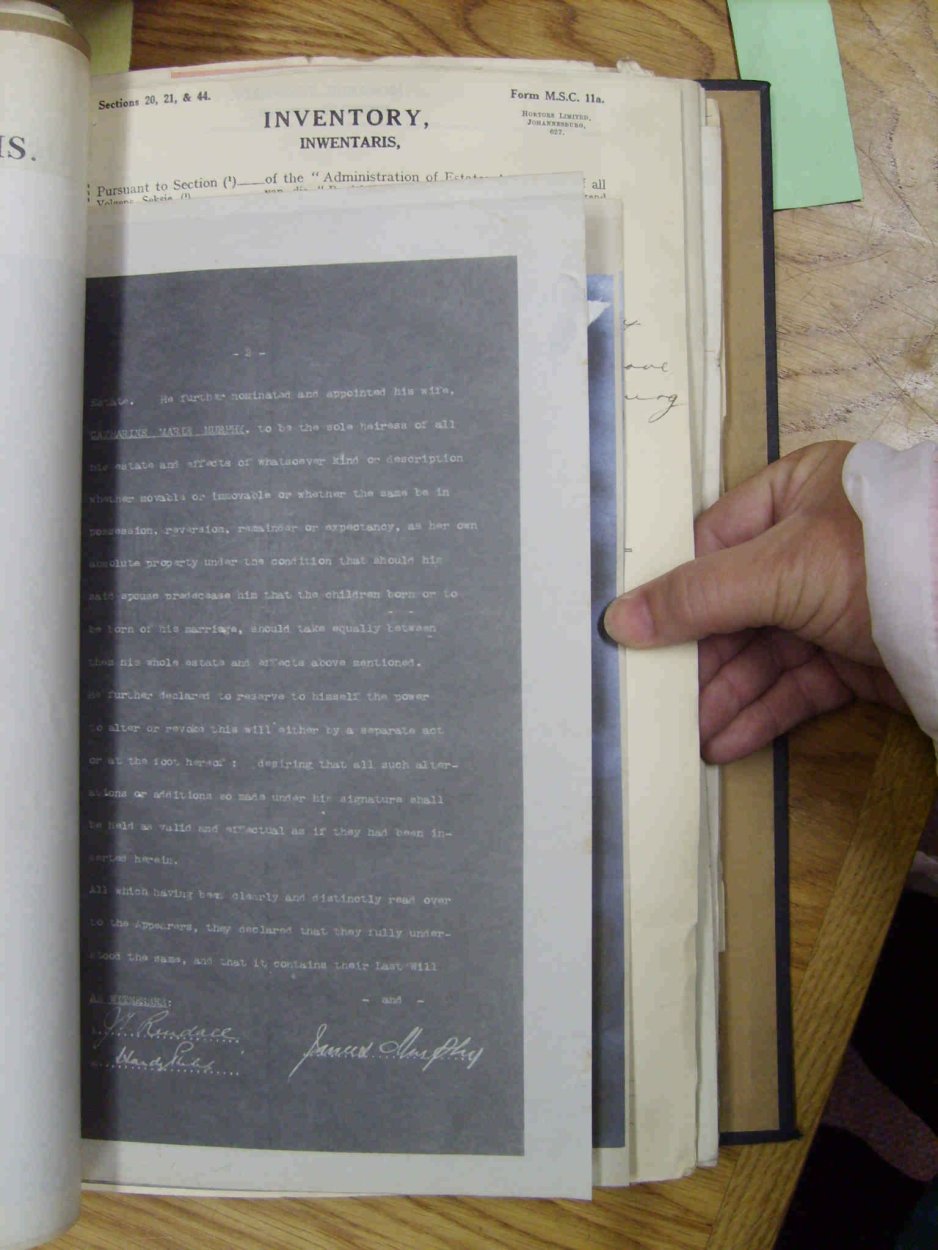 IS.
Sections 20, 21, & 44.
Form M.S.C. 11a.
HORTORS LIMITED,
JOHANNESBURG,
627.
INVENTORY,
INWENTARIS,
Pursuant to Section (¹)——of the "Administration of Estates all
Volgens Seksie (¹) van die
- 2 -
Estate. He further nominated and appointed his wife,
CATHARINE MARIE MURPHY, to be the sole heiress of all
his estate and effects of whatsoever kind or description
whether movable or immovable or whether the same be in
possession, reversion, remainder or expectancy, as her own
absolute property under the condition that should his
said spouse predecease him that the children born or to
be born of his marriage, should take equally between
them his whole estate and effects above mentioned.
He further declared to reserve to himself the power
to alter or revoke this will either by a separate act
or at the foot hereof : desiring that all such alter-
ations or additions so made under his signature shall
be held as valid and effectual as if they had been in-
serted herein.
All which having been clearly and distinctly read over
to the Appearers, they declared that they fully under-
stood the same, and that it contains their Last Will
AS WITNESSES: - and -
Rendall.
James Murphy